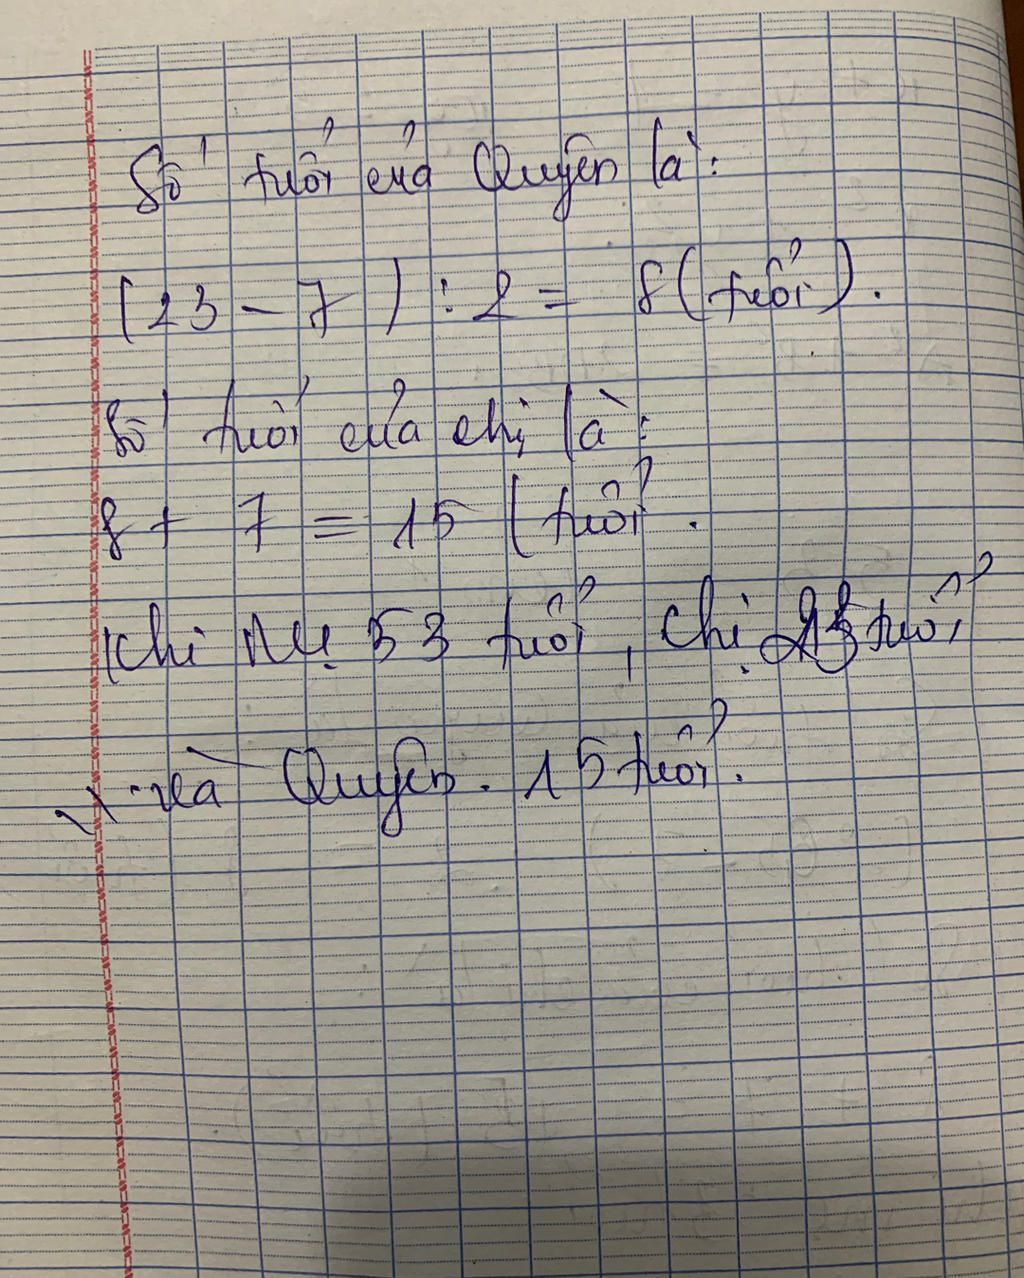 Số tuổi của Quyên là:
(23 - 7) : 2 = 8 (tuổi).
Số tuổi của chị là:
8 + 7 = 15 (tuổi.
Khi Mẹ 53 tuổi, chị tuổi
và Quyên. 15 tuổi.